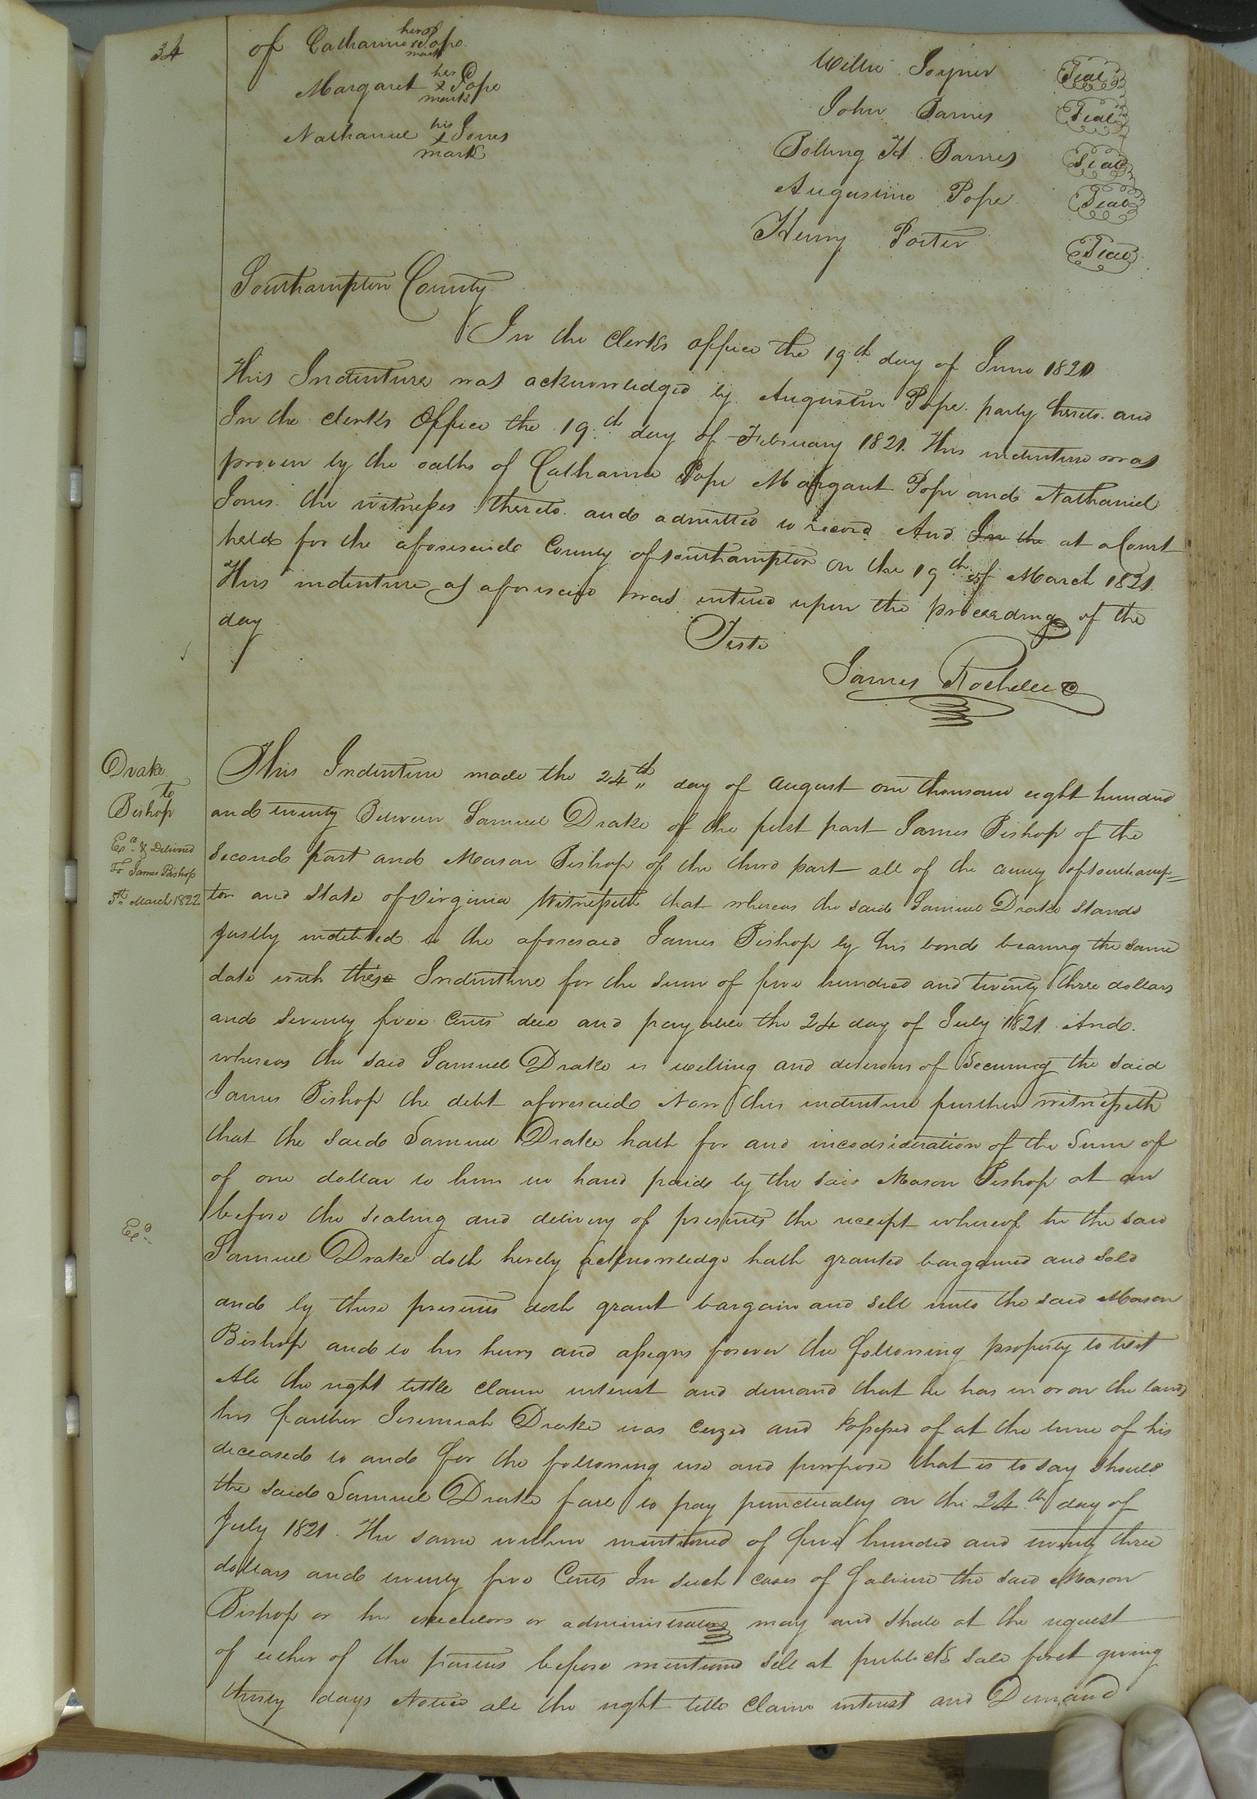 34
of Catharine her x mark Pope
Margaret her x mark Pope
Nathaniel his x mark Jones
Willie Joyner Seal
John Barnes Seal
Bolling H. Barnes Seal
Augustine Pope Seal
Henry Porter Seal
Southampton County
In the Clerks office the 19.th day of June 1820
This Indenture was acknowledged by Augustin Pope party hereto and
In the clerks Office the 19.th day of February 1821. This indenture was
proven by the oaths of Catharine Pope Margaret Pope and Nathaniel
Jones the witnesses thereto and admitted to record And In the at a Court
held for the aforesaid County of southampton on the 19th of March 1821
This indenture as aforesaid was entered upon the proceedings of the
day
Teste
James Rochelle C
Drake
to
Bishop
Exd & Delivered
To James Bishop
5th March 1822
This Indenture made the 24th day of August one thousand eight hundred
and twenty Between Samuel Drake of the first part James Bishop of the
Second part and Mason Bishop of the third part all of the County of southamp=
ton and State of Virginia Witnesseth that whereas the said Samuel Drake stands
justly indebted to the aforesaid James Bishop by his bond bearing the same
date with these Indenture for the sum of five hundred and twenty three dollars
and seventy five Cents due and payable the 24 day of July 1821. And
whereas the said Samuel Drake is willing and desirous of Securing the said
James Bishop the debt aforesaid Now this indenture further witnesseth
that the said Samuel Drake hath for and inconsideration of the Sum of
of one dollar to him in hand paid by the said Mason Bishop at an
before the sealing and delivery of presents the receipt whereof he the said
Exd
Samuel Drake doth hereby acknowledge hath granted bargained and sold
and by these presents doth grant bargain and sell unto the said Mason
Bishop and to his heirs and assigns forever the following property to wit
All the right tittle claim interest and demand that he has in or on the land
his farther Jeremiah Drake was cezed and possessed of at the time of his
deceased to and for the following use and purpose that is to say should
the said Samuel Drake fail to pay punctually on the 24.th day of
July 1821. The same within mentioned of five hundred and twenty three
dollars and twenty five Cents In such cases of failure the said Mason
Bishop or his executors or administrators may and shall at the request
of either of the parties before mentioned sell at publick sale first giving
thirty days Notice all the right title Claim interest and Demand